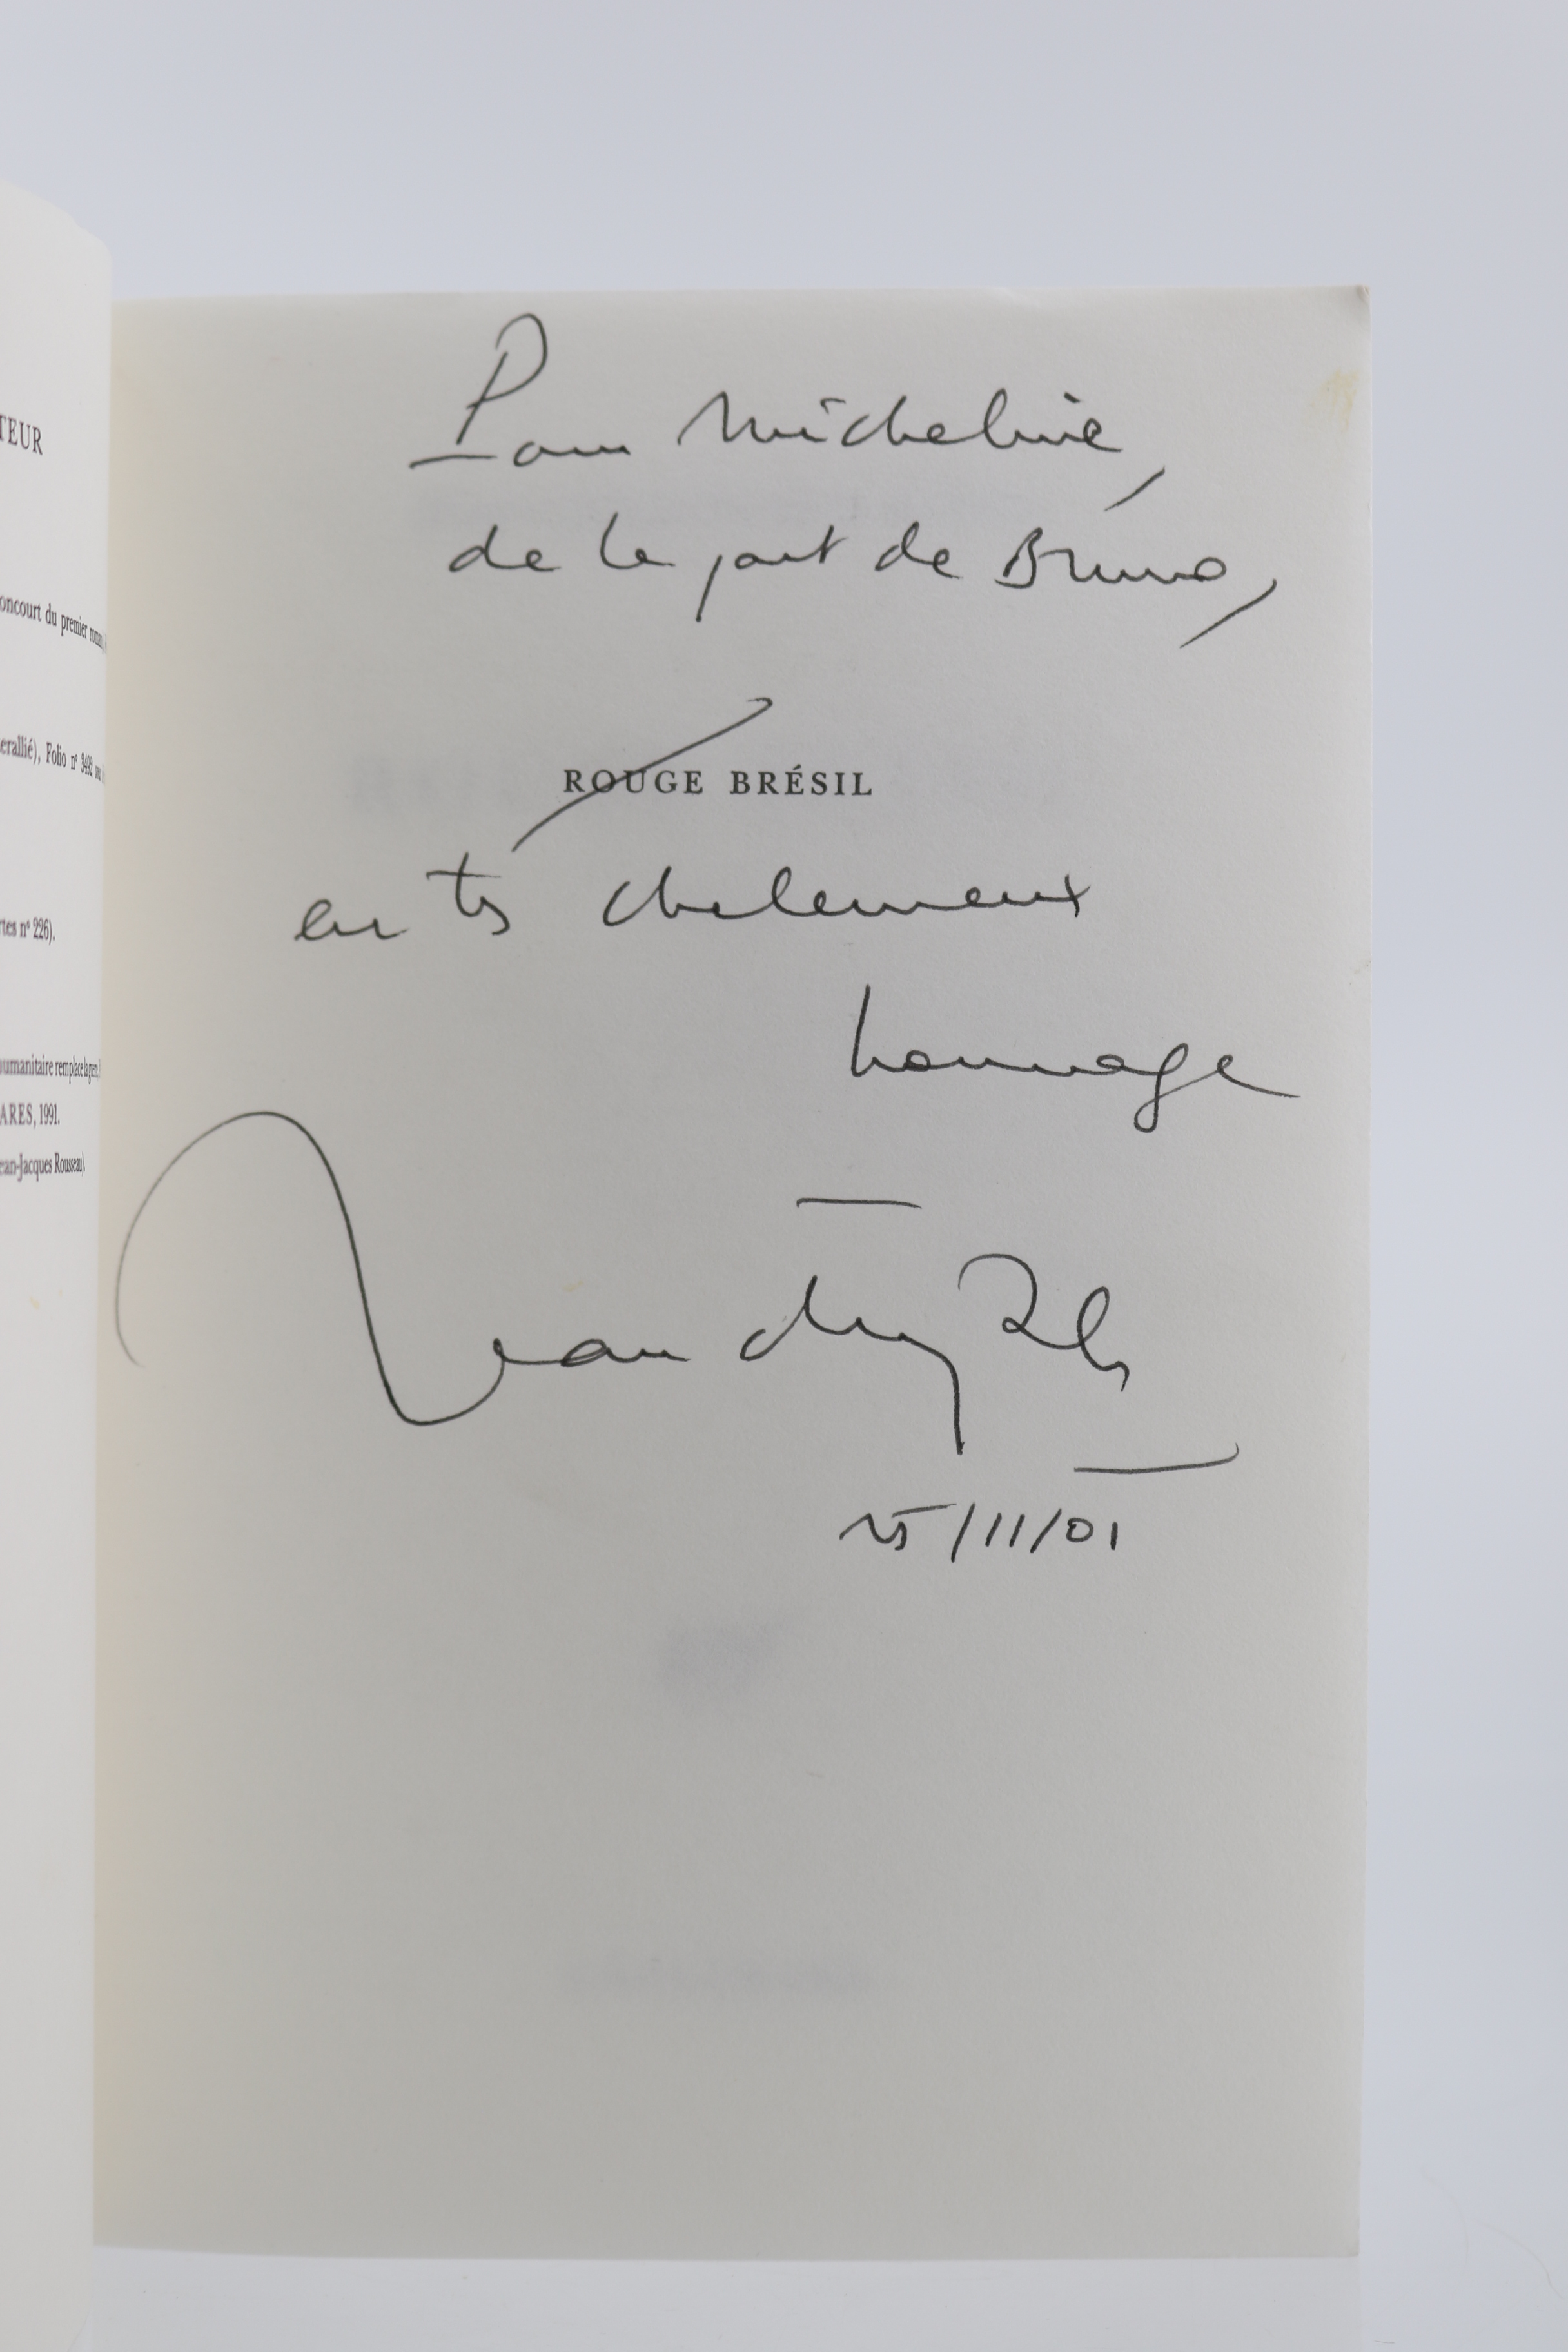 TEUR
oncourt du premier roman,
erallié), Folio n° 3492
rtes n° 226).
humanitaire remplace la
ARES, 1991.
ean-Jacques Rousseau).
Pour Micheline,
de la part de Bruno,
ROUGE BRÉSIL
en très chaleureux
hommage
Jean
25/11/01